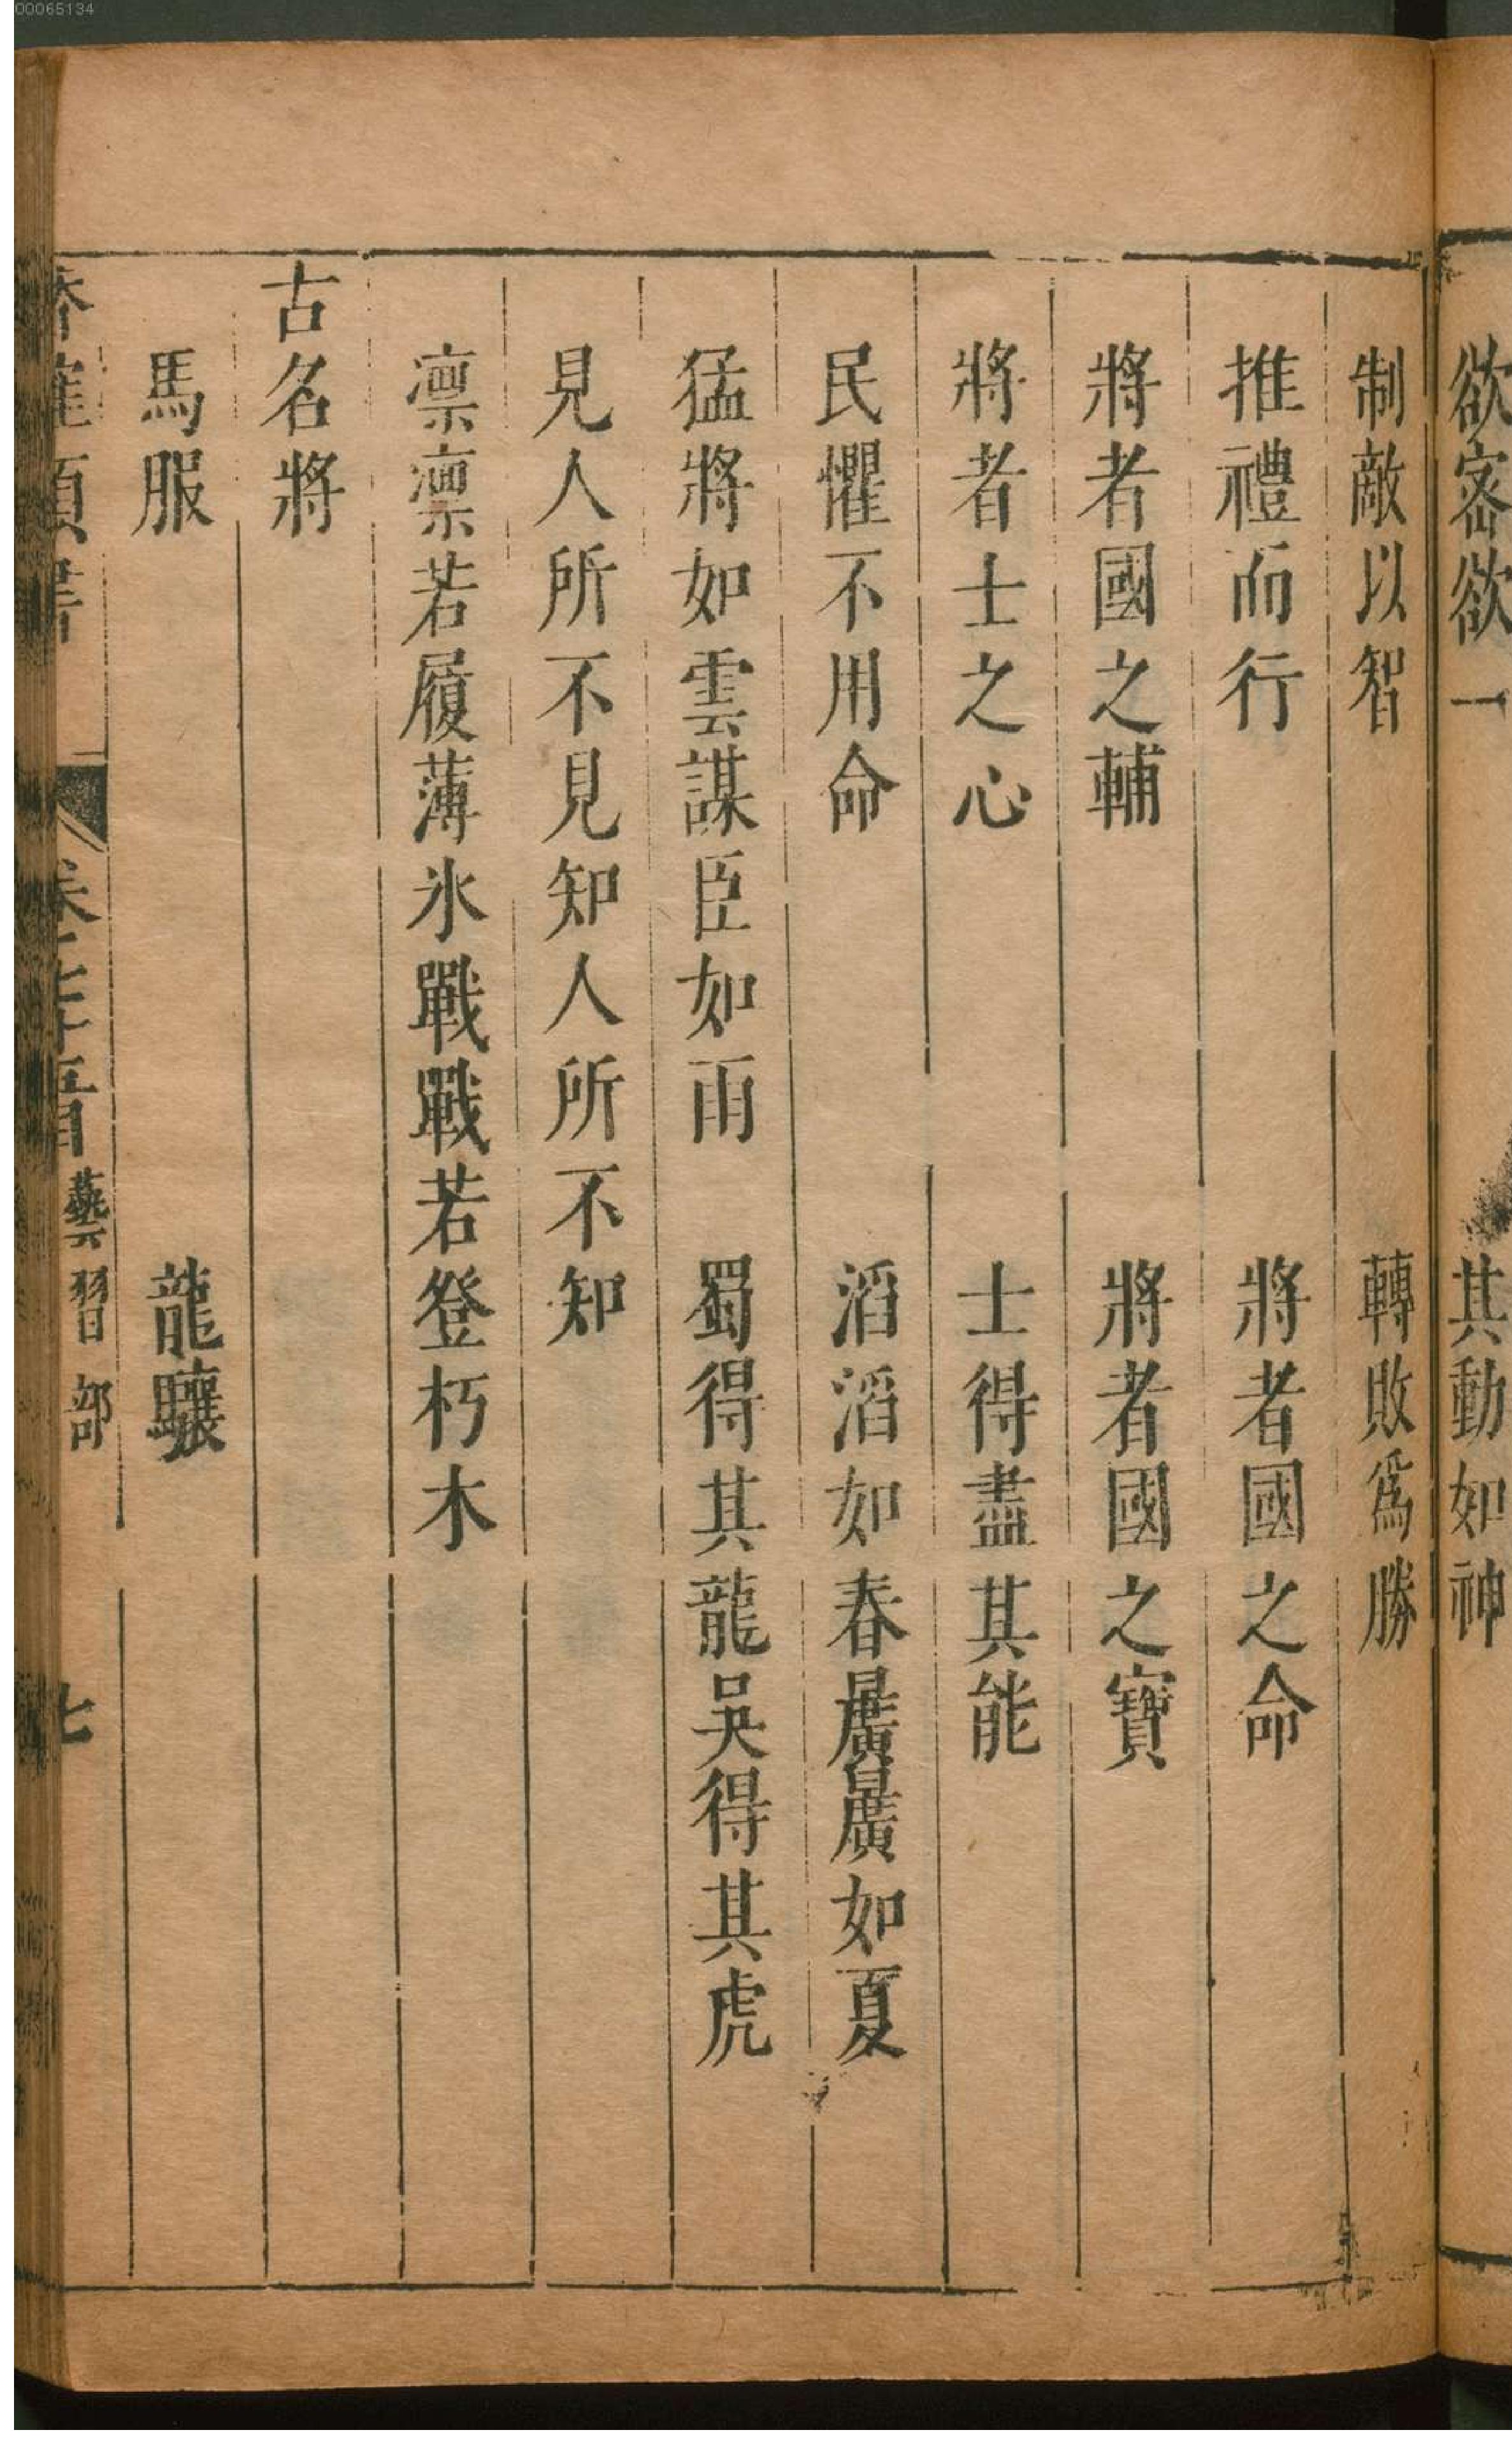 00065134
欲密欲一 其動如神
制敵以智 轉敗爲勝
推禮而行 將者國之命
將者國之輔 將者國之寶
將者士之心 士得盡其能
民懼不用命 滔滔如春曠曠如夏
猛將如雲謀臣如雨 蜀得其龍吳得其虎
見人所不見知人所不知
凛凛若履薄氷戰戰若登朽木
古名將
馬服 龍驤
藝習部 七